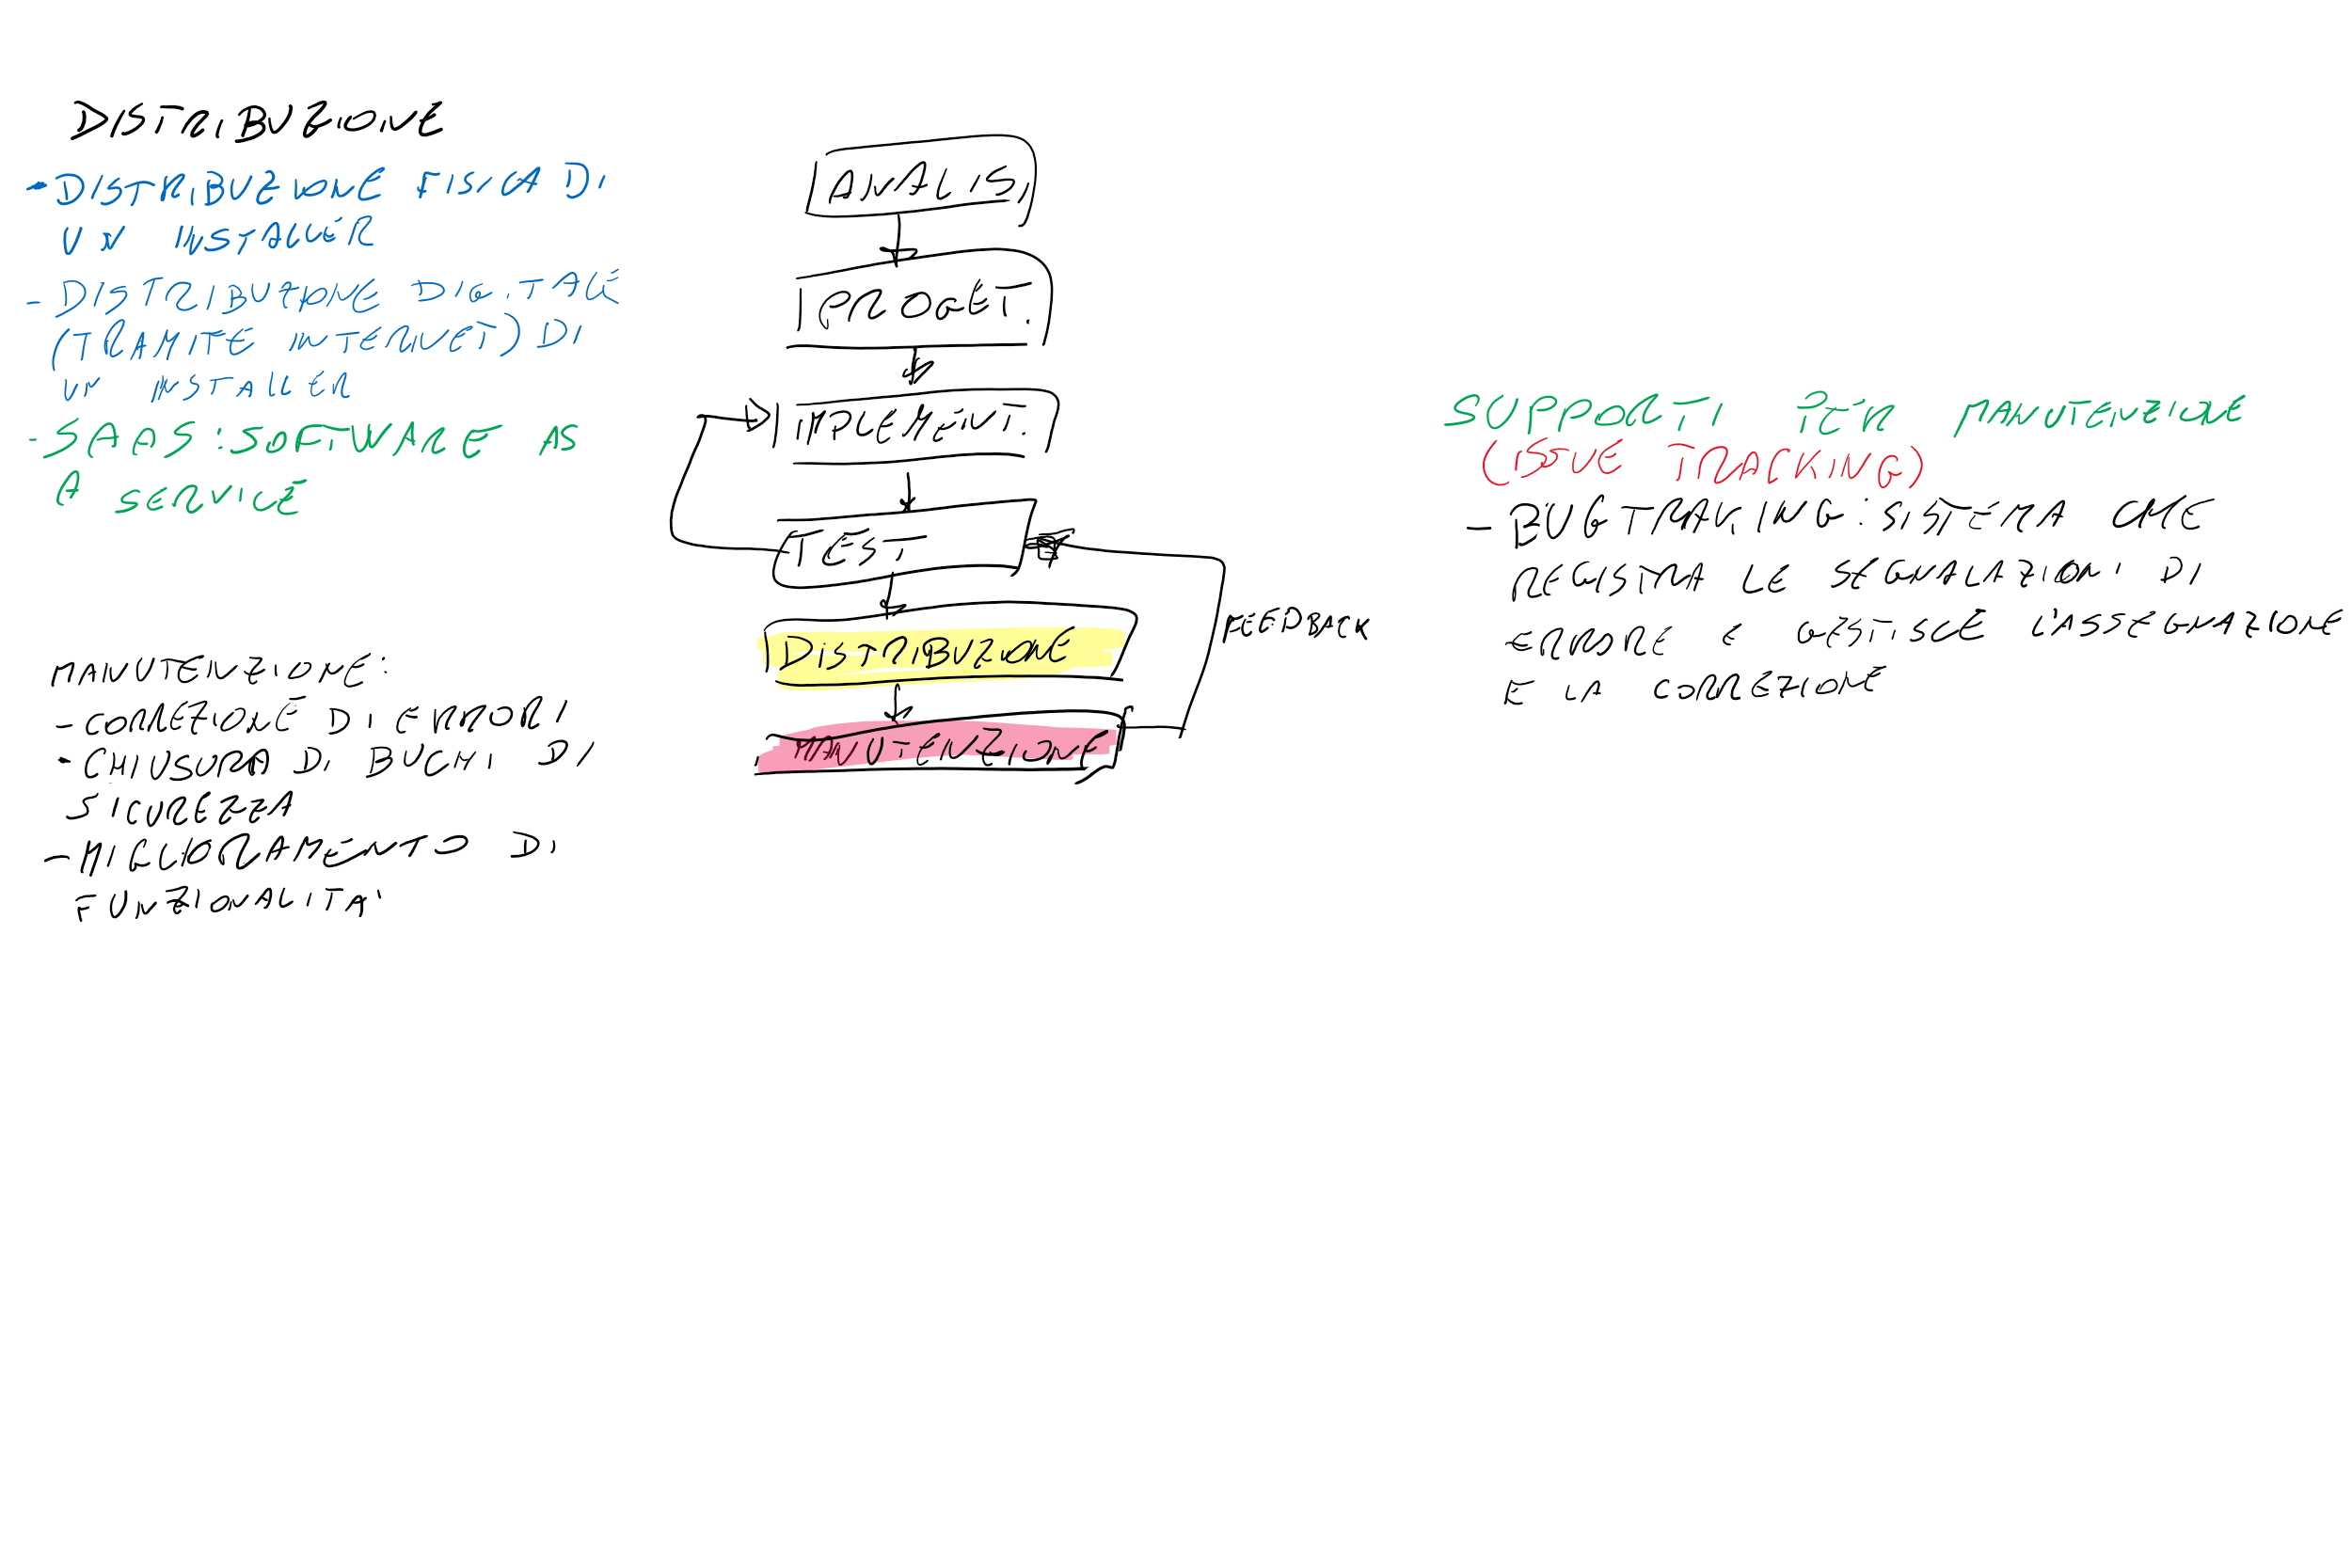 DISTRIBUZIONE
- DISTRIBUZIONE FISICA DI
UN INSTALLER
- DISTRIBUZIONE DIGITALE
(TRAMITE INTERNET) DI
UN INSTALLER
- SAAS: SOFTWARE AS
A SERVICE
MANUTENZIONE:
- CORREZIONE DI ERRORI
- CHIUSURA DI BUCHI DI
SICUREZZA
- MIGLIORAMENTO DI
FUNZIONALITA'
ANALISI
PROGET.
IMPLEMENT.
TEST
DISTRIBUZIONE
MANUTENZIONE
FEEDBACK
SUPPORTI PER MANUTENZIONE
(ISSUE TRACKING)
- BUGTRAKING: SISTEMA CHE
REGISTRA LE SEGNALAZIONI DI
ERRORE E GESTISCE L'ASSEGNAZIONE
E LA CORREZIONE